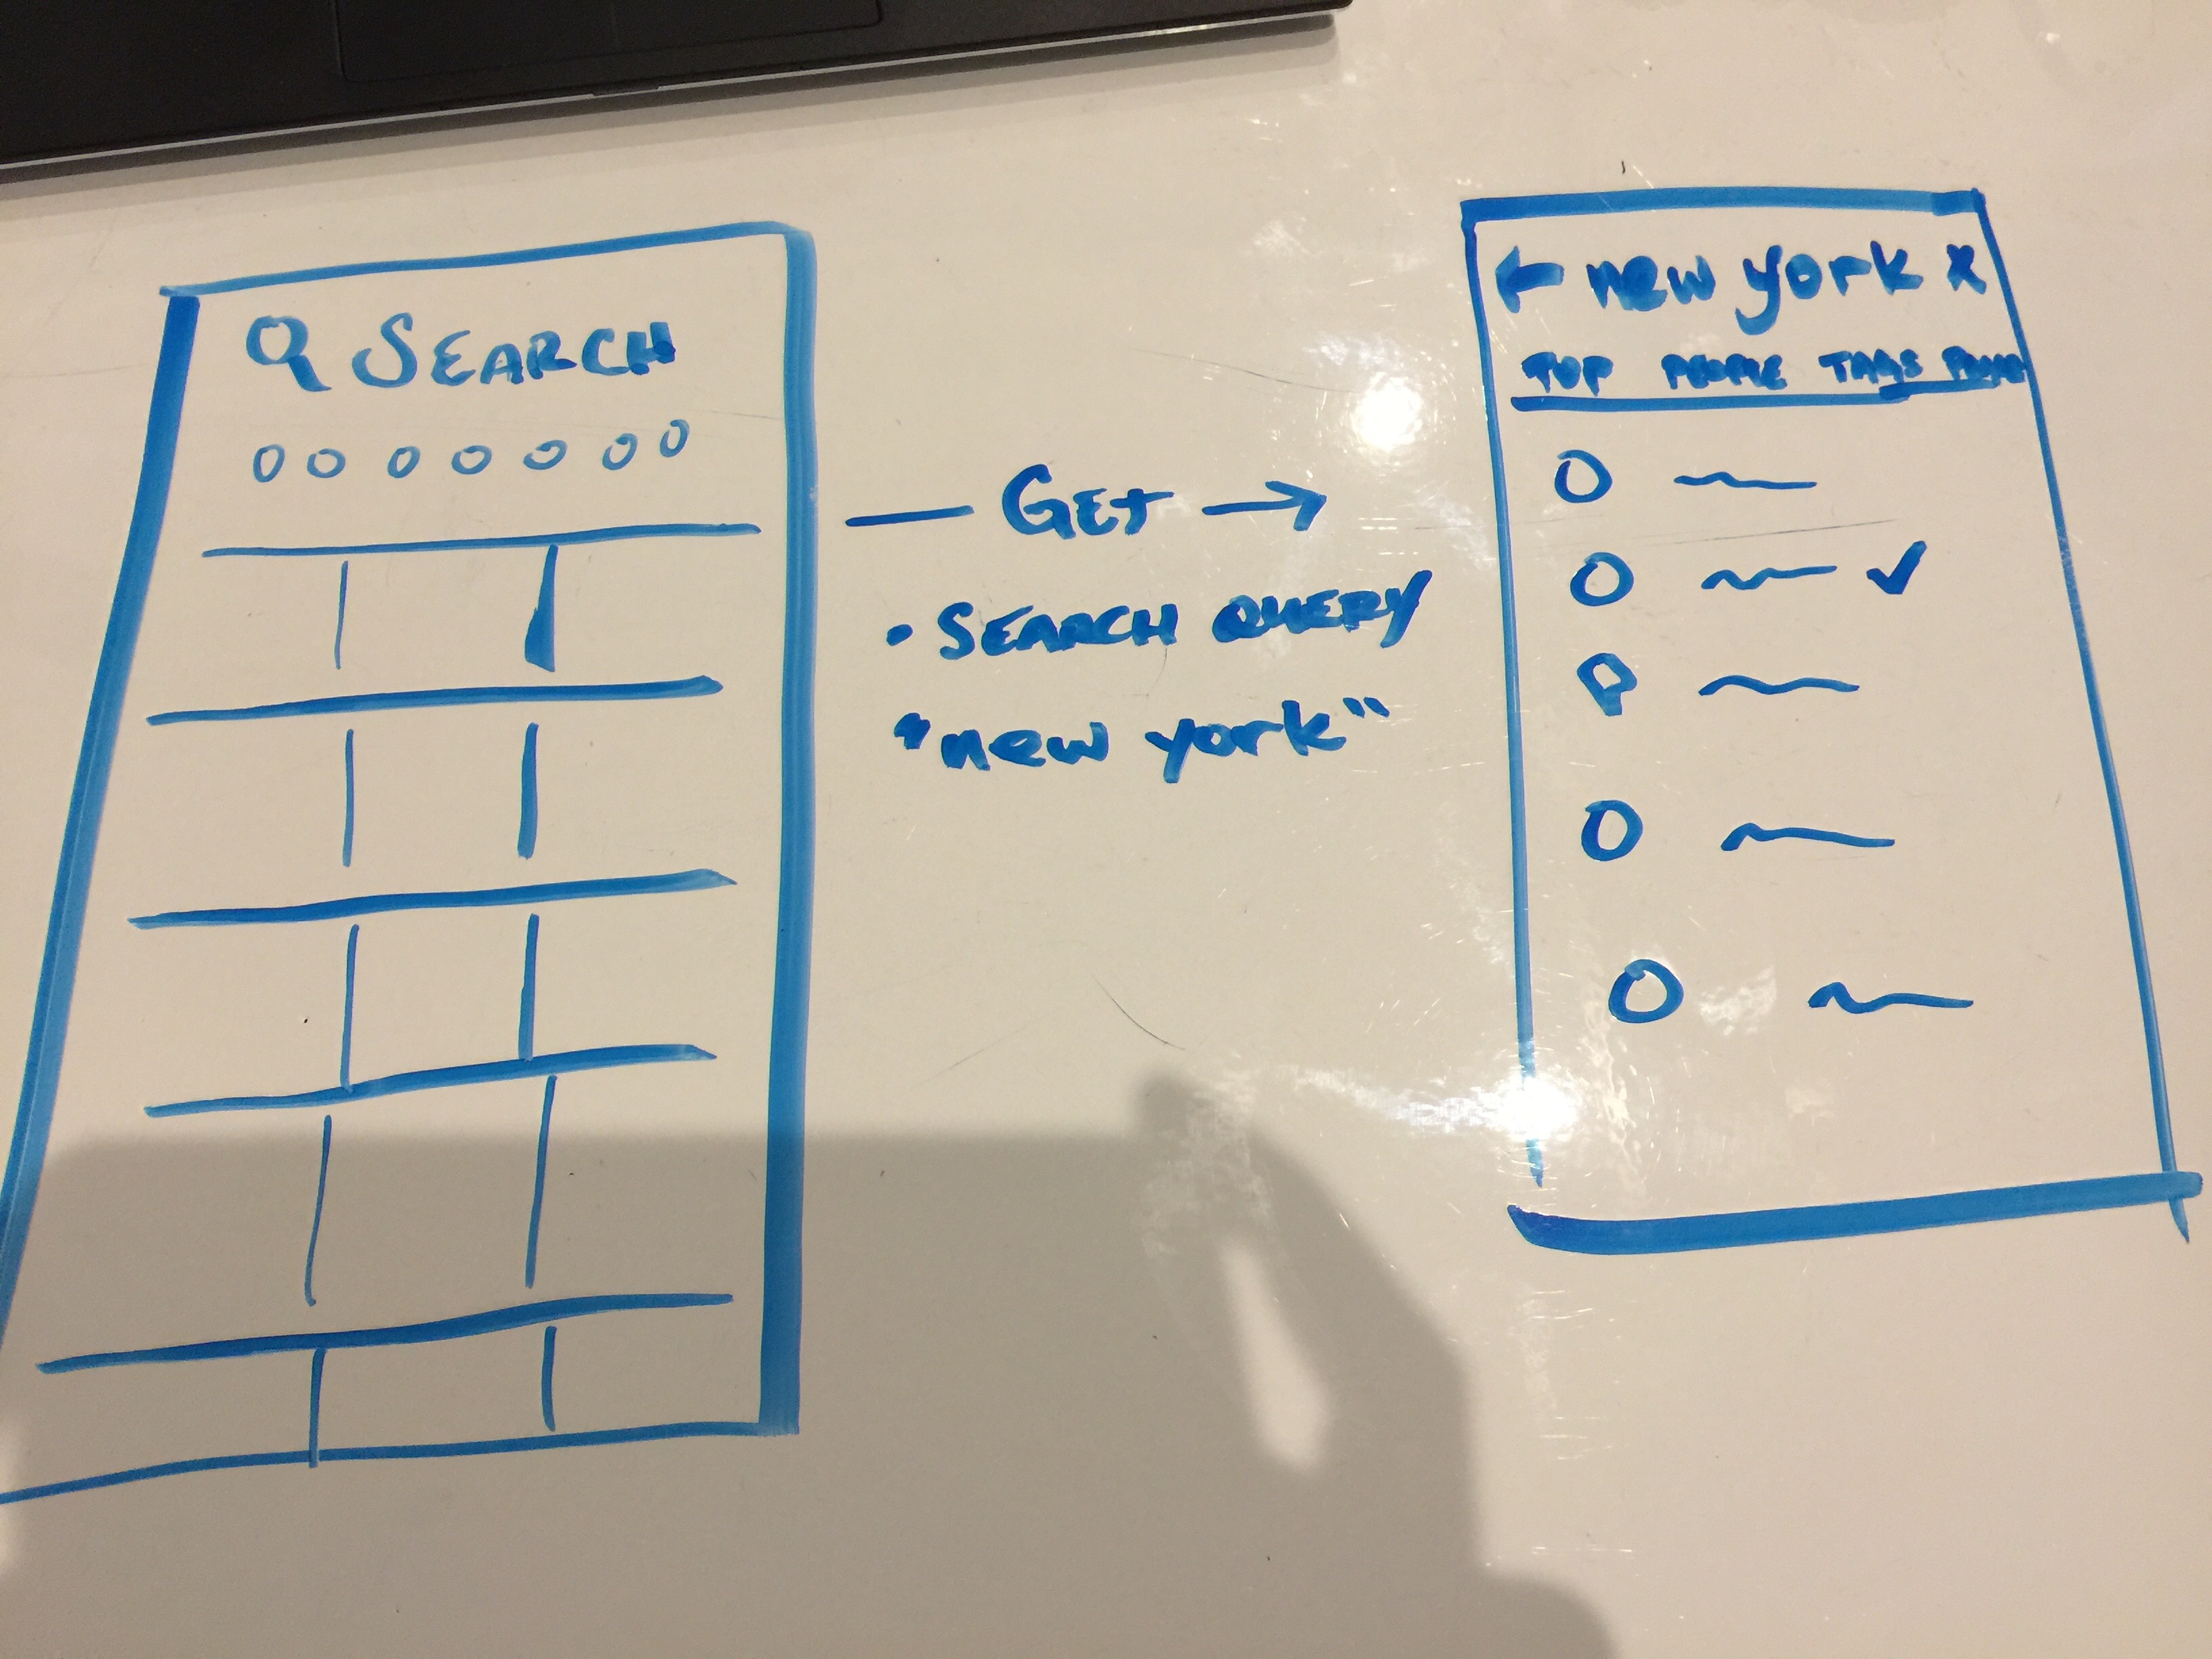 SEARCH
GET
• SEARCH QUERY
"new york"
← new york x
TOP PEOPLE TAGS